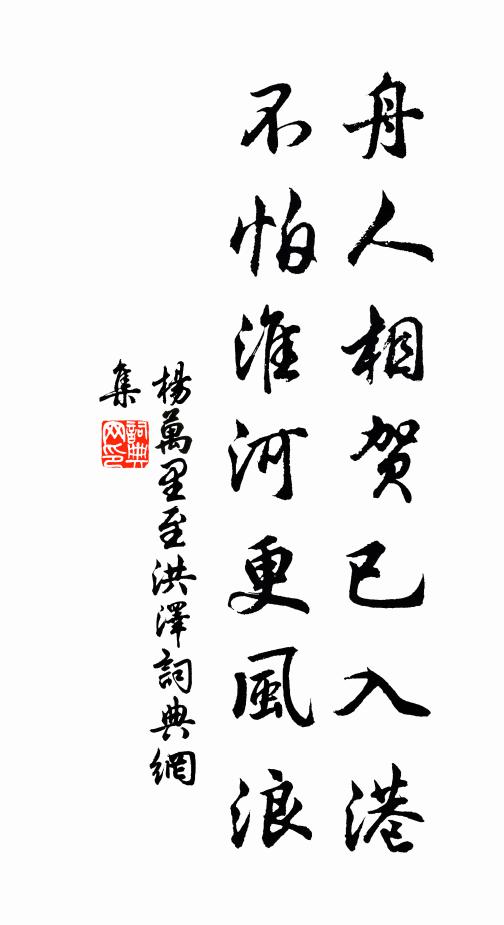 舟人相贺已入港
不怕淮河更風浪
楊萬里至洪澤詞典網
集
詞典
网印